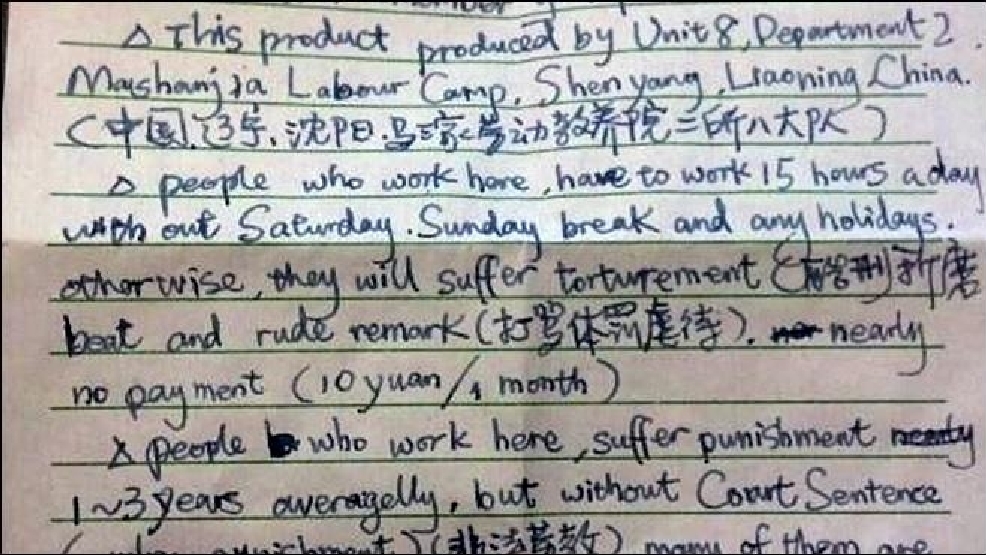 △ This product produced by Unit 8, Department 2.
Mashanjia Labour Camp. Shenyang, Liaoning, China.
(中国.辽宁.沈阳.马三家劳动教养院二所八大队)
△ people who work here, have to work 15 hours a day
with out Saturday. Sunday break and any holidays.
otherwise, they will suffer torturement ( ) 折磨
beat and rude remark (打骂体罚虐待). nearly
no payment (10 yuan/1 month)
△ people who work here, suffer punishment nearly
1~3 years averagelly, but without Court Sentence
punishment) (非法劳教) many of them are